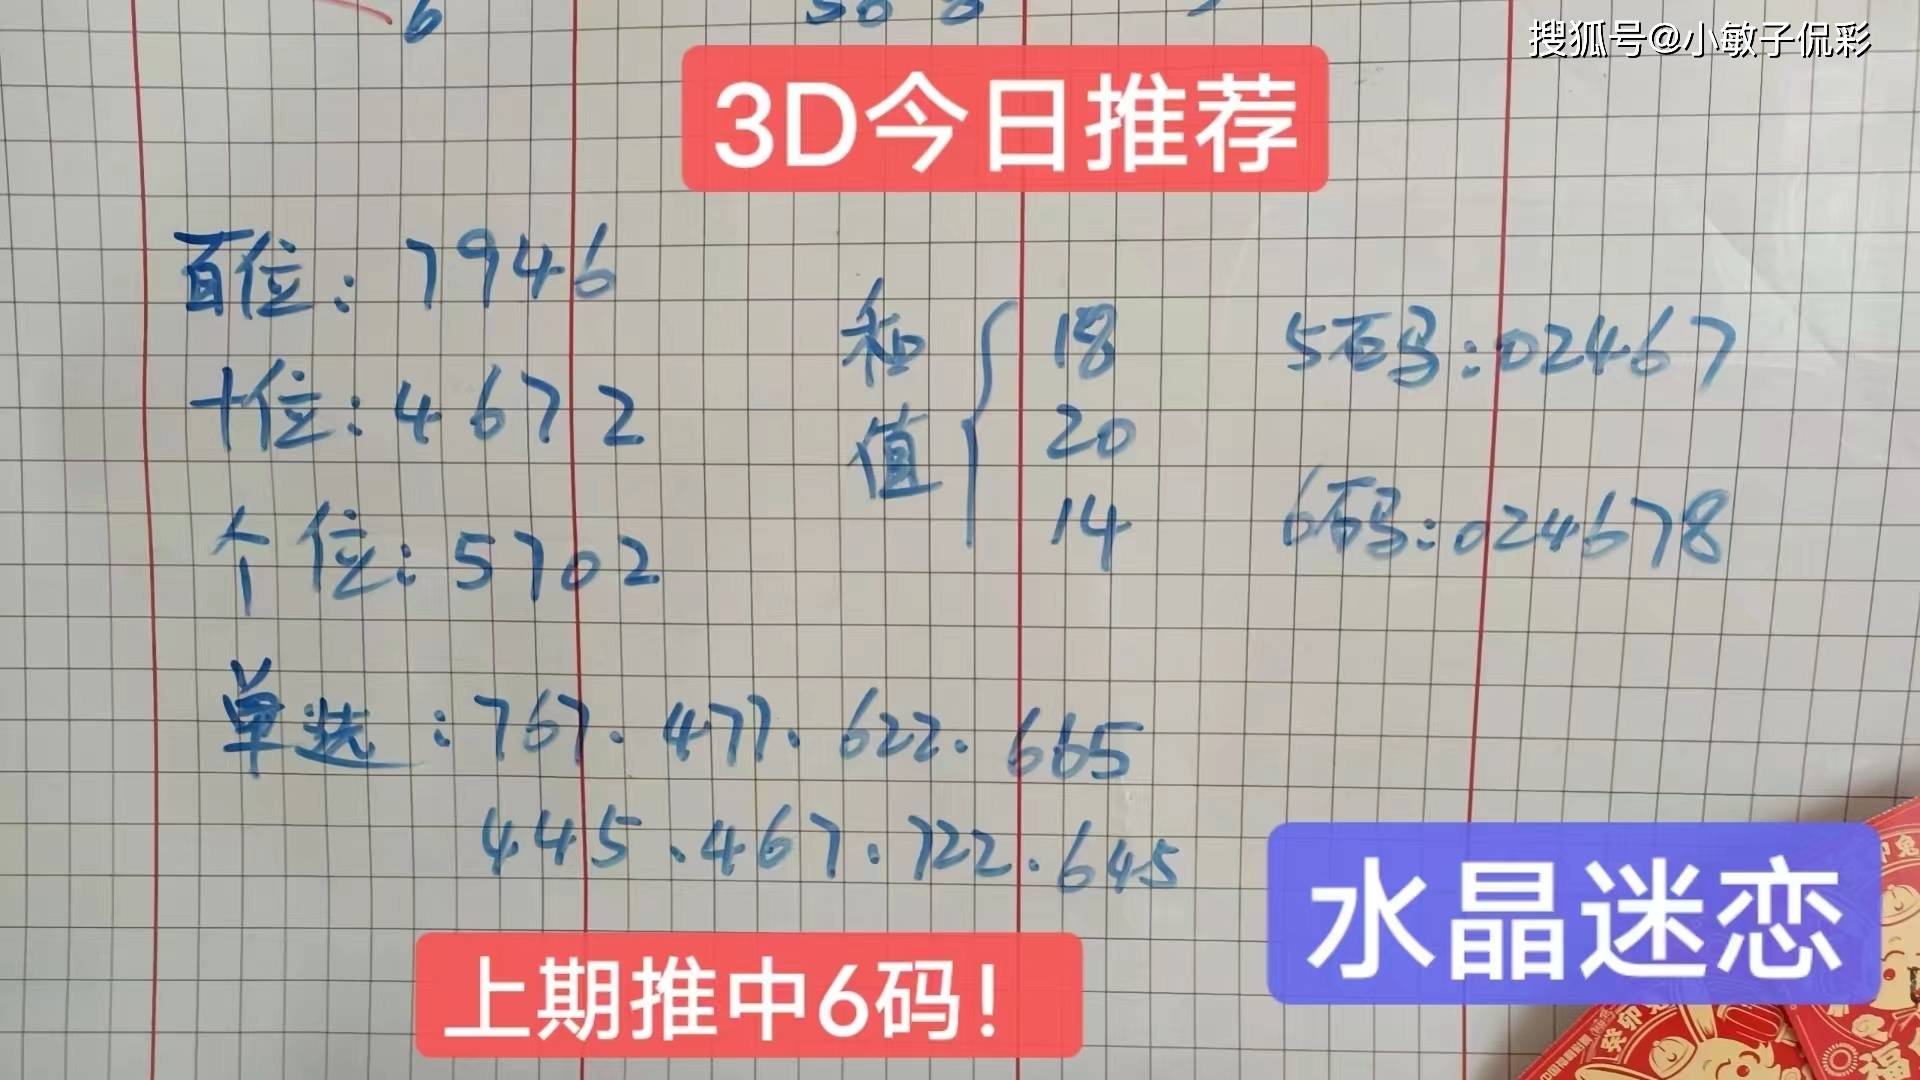 搜狐号@小敏子侃彩
6
3D今日推荐
百位：7946
十位：4672
个位：5702
和值
18
20
14
5码：02467
6码：024678
单选：767.477.622.665
445.467.722.645
水晶迷恋
上期推中6码！
癸卯
福